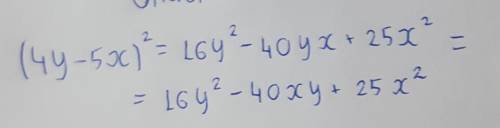 (4y-5x)² = 16y² - 40yx + 25x² =
= 16y² - 40xy + 25x²